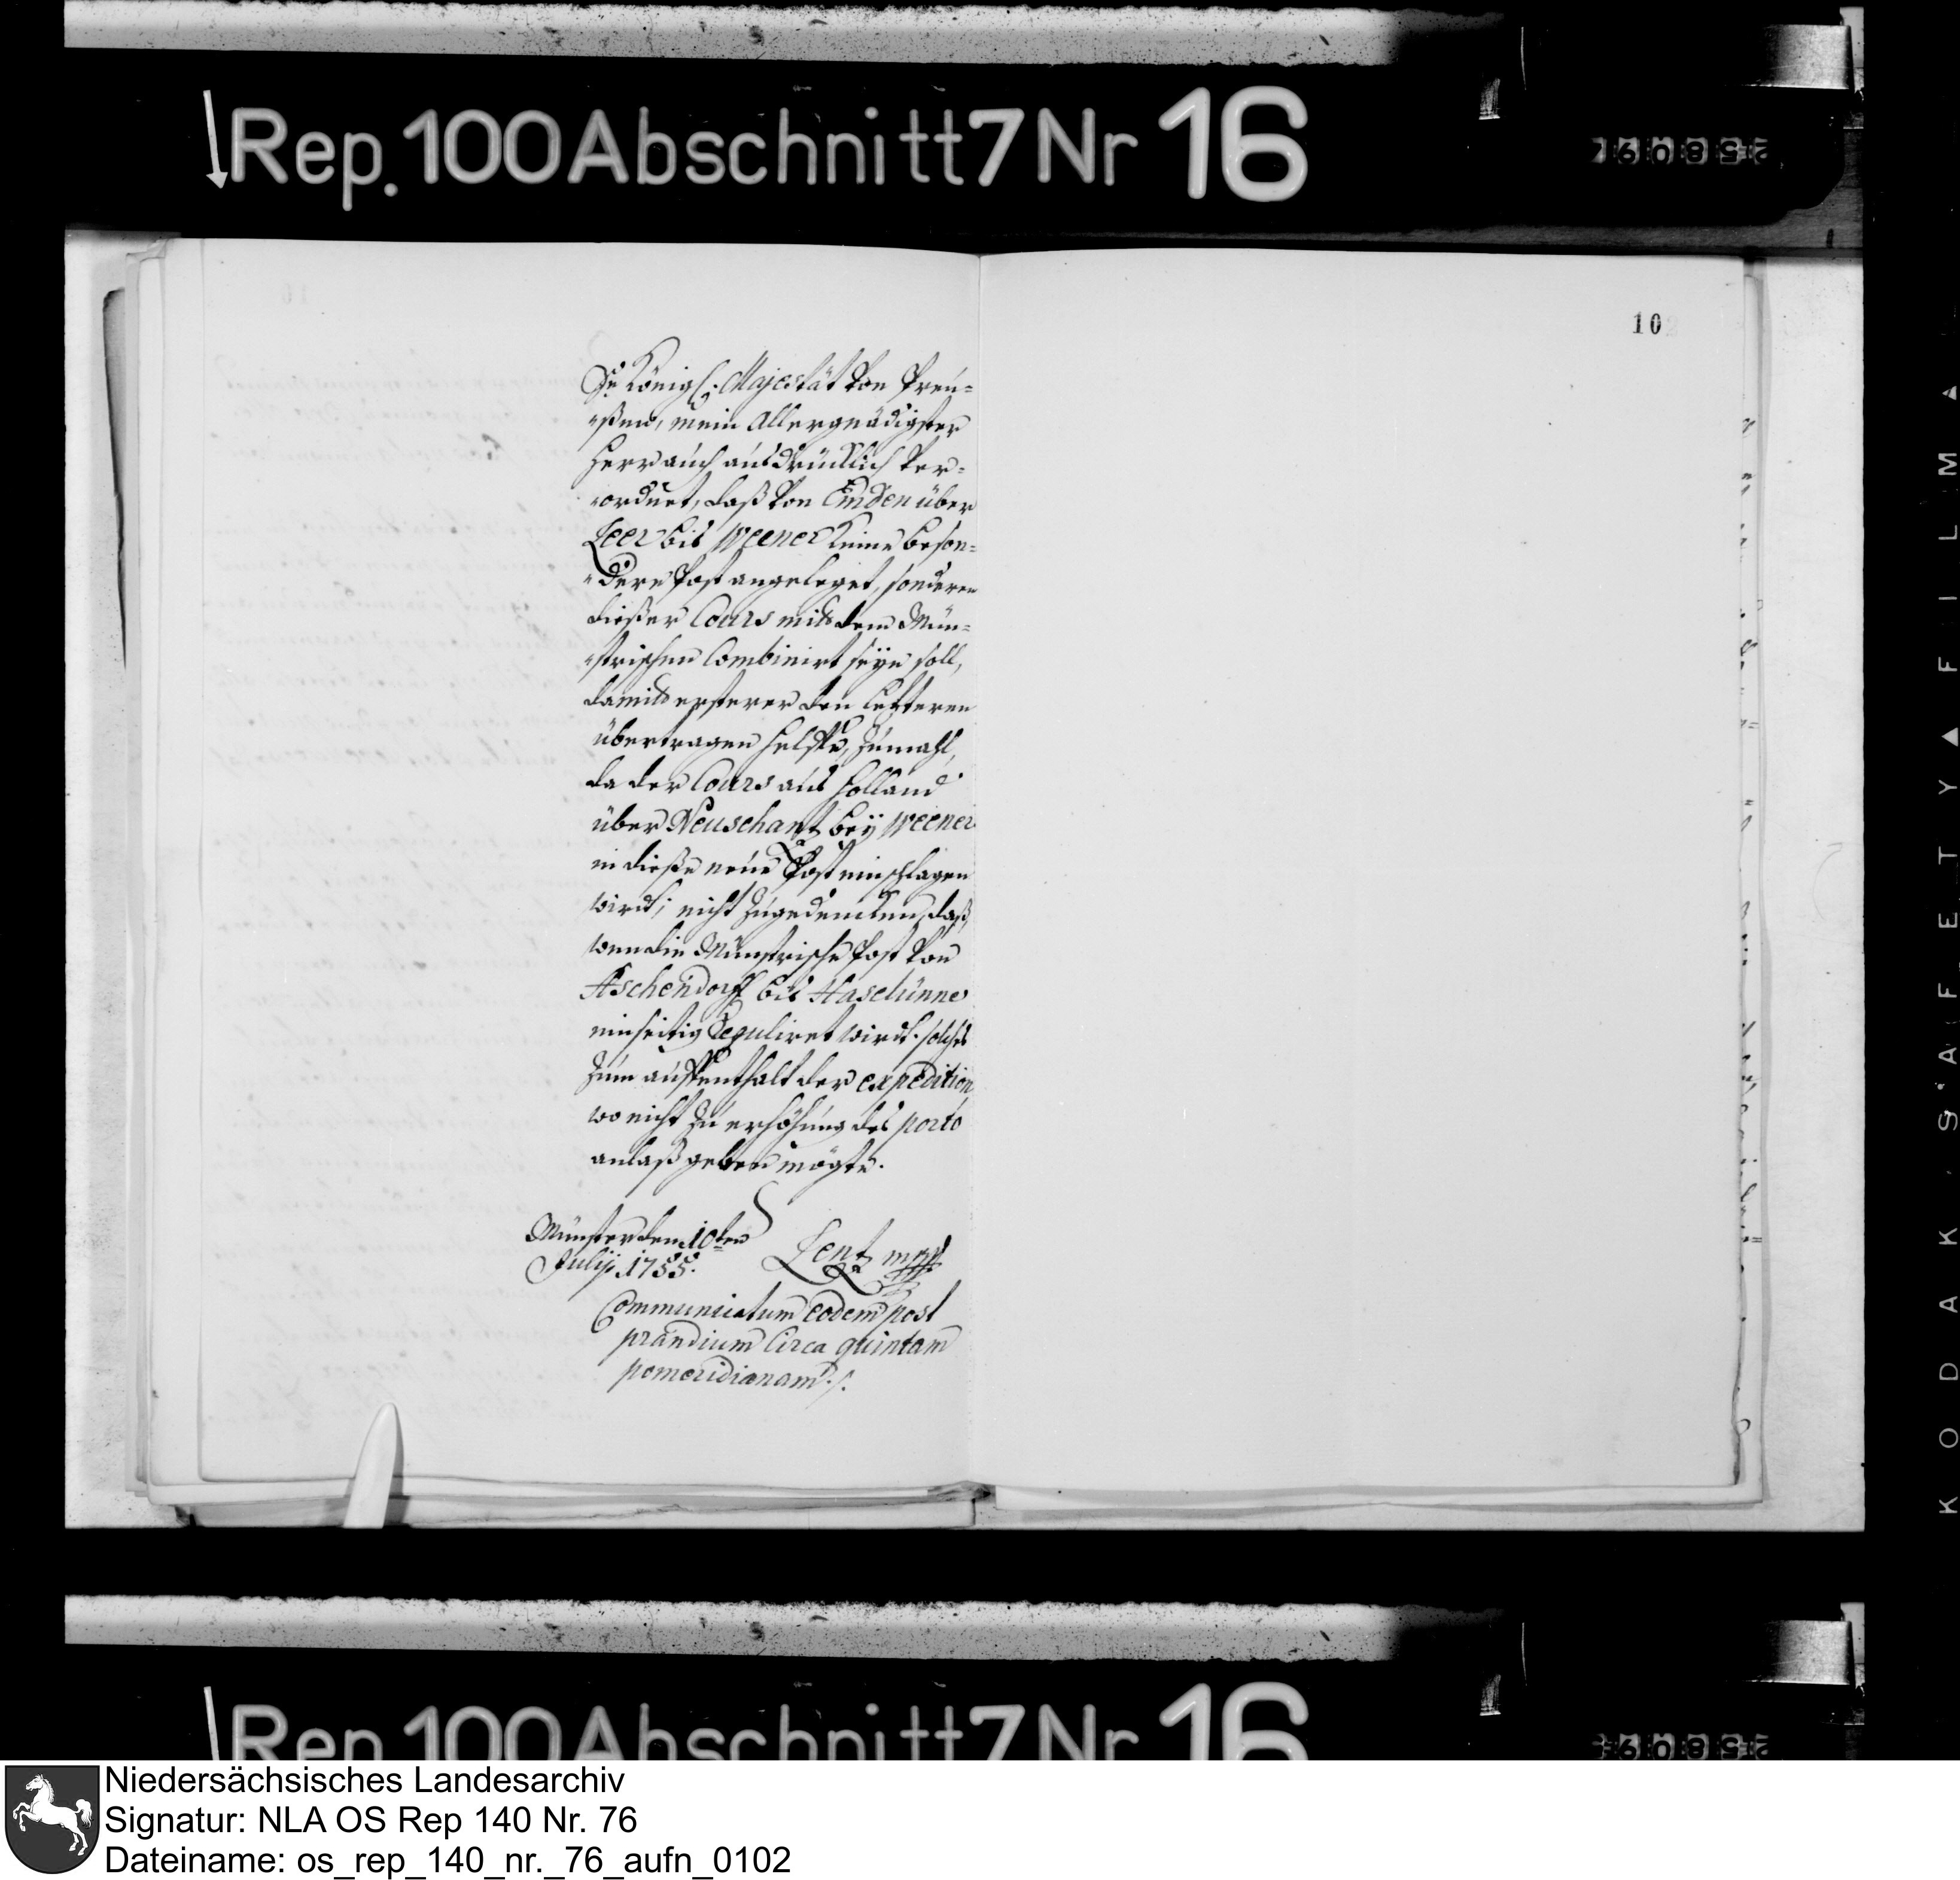 Rep. 100 Abschnitt 7 Nr 16
10
Se Königl. Majestät von Preu=
=ßen, mein Allergnädigster
Herr auch ausdrücklich ver=
=ordnet, daß von Emden über
Leer bis Weener keine beson=
=dere Post angeleget, sonderen
dießer Cours mit dem Mün=
=strischen Combinirt seyn soll,
damit ersterer den letzteren
übertragen helffe, zumahl,
da der Cours aus Holland
über Neuschantz bey Weener
in dieße neue Post einschlagen
wird; nicht zugedencken, daß,
wen die Münstrische Post von
Aschendorff bis Haselünne
einseitig Reguliret wird. solches
zum auffenthalt der expedition,
wo nicht zu erhöhung des porto
anlaß geben mögte.
Münster den 10ten
Julij 1755.
Lentz mpp
Communicatum eodem post
prandium circa quintam
pomeridianam ./.
KODAK SAFETY FILM
Rep. 100 Abschnitt 7 Nr 16
Niedersächsisches Landesarchiv
Signatur: NLA OS Rep 140 Nr. 76
Dateiname: os_rep_140_nr._76_aufn_0102